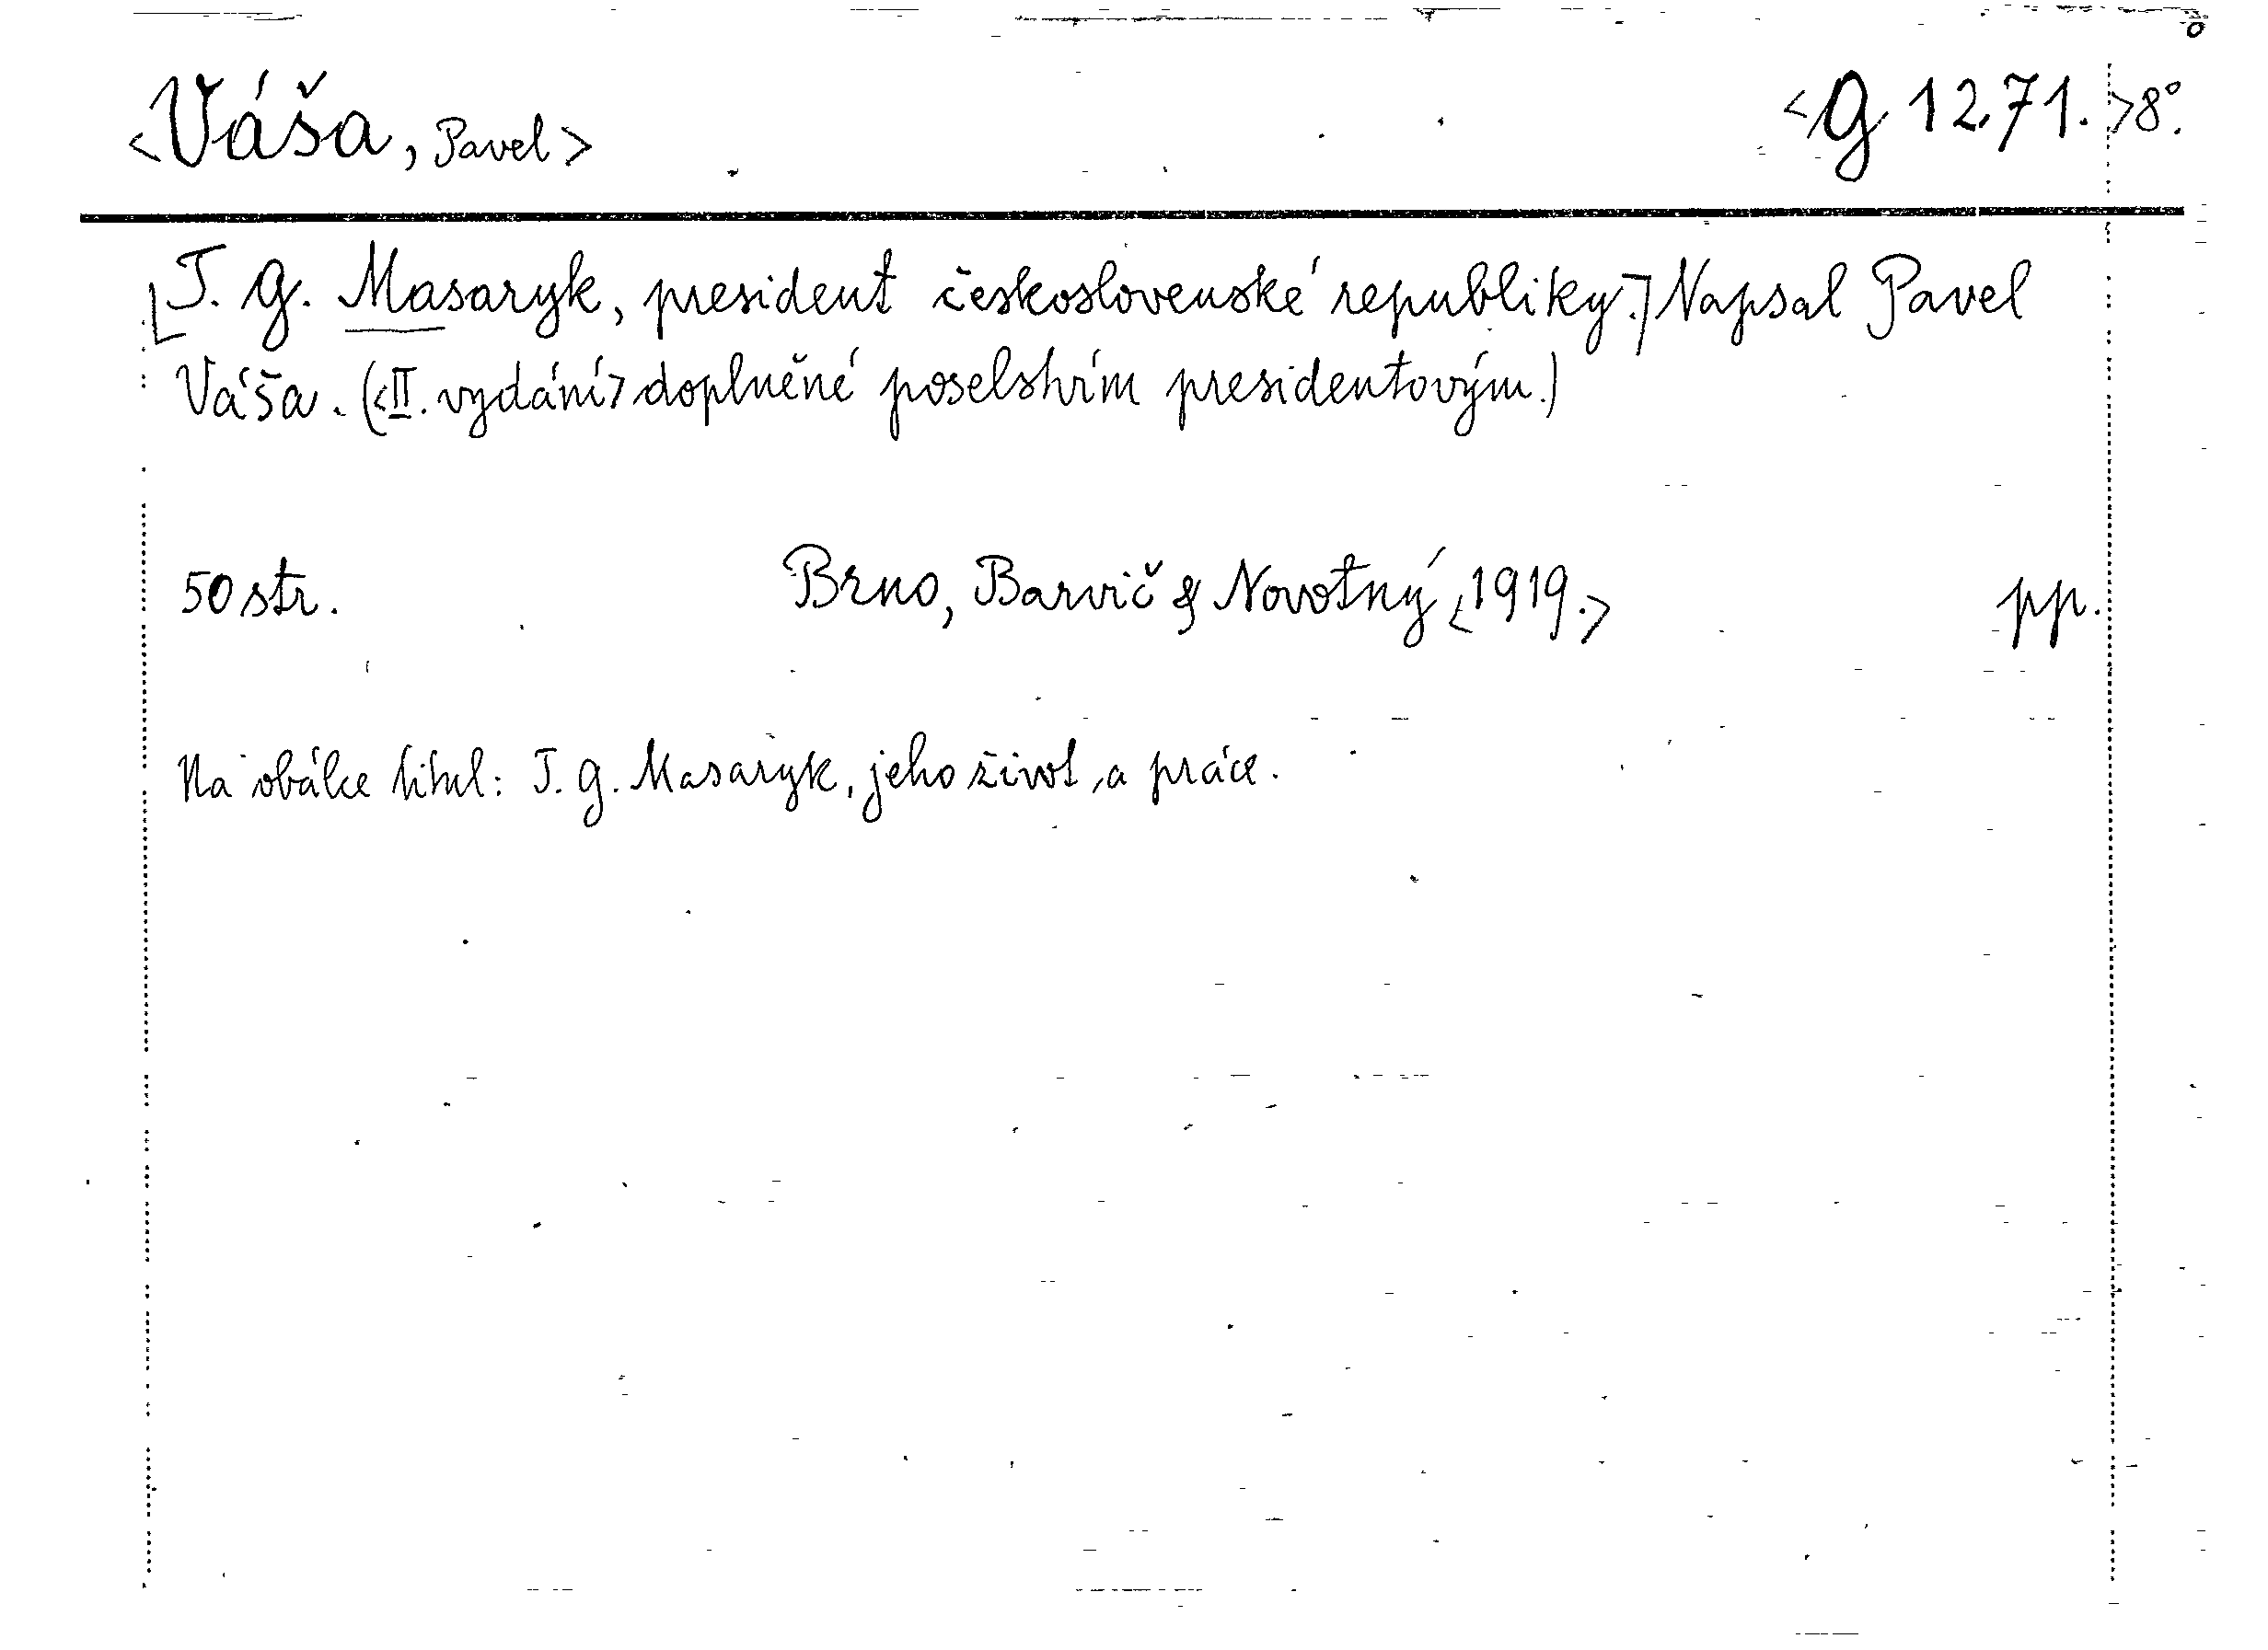 <Váša, Pavel> <G 12.71.>8°.
[T. G. Masaryk, president československé republiky.] Napsal Pavel
Váša. (<II. vydání> doplněné poselstvím presidentovým.)
50 str. Brno, Barvič & Novotný <1919.> pp.
Na obálce titul: T. G. Masaryk, jeho život a práce.